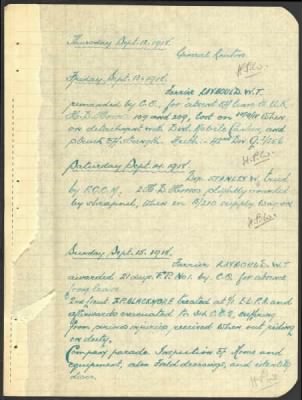 Thursday Sept. 12. 1918.
General Routine
Friday, Sept. 13. 1918.
Farrier RAYBOULD W.T
remanded by C.O. for absent off leave to U.K
H.D. Horses 109 and 209, lost on when
on detachment with Divl. Mobile Canteen, and
struck off strength.
Saturday Sept. 14. 1918.
STANLEY W. tried
by F.G.C.M. 2 H.D. Horses slightly wounded
by shrapnel, when on supply wagon
Sunday Sept. 15. 1918.
Farrier RAYBOULD W.T
awarded 21 days. F.P. No 1. by C.O. for absence
from leave
2nd Lieut BLACKMORE treated at
afterwards evacuated to C.C.S, suffering
from injuries received when out riding
on duty.
Company parade. Inspection of Arms and
equipment, also field dressings, and identity
discs.